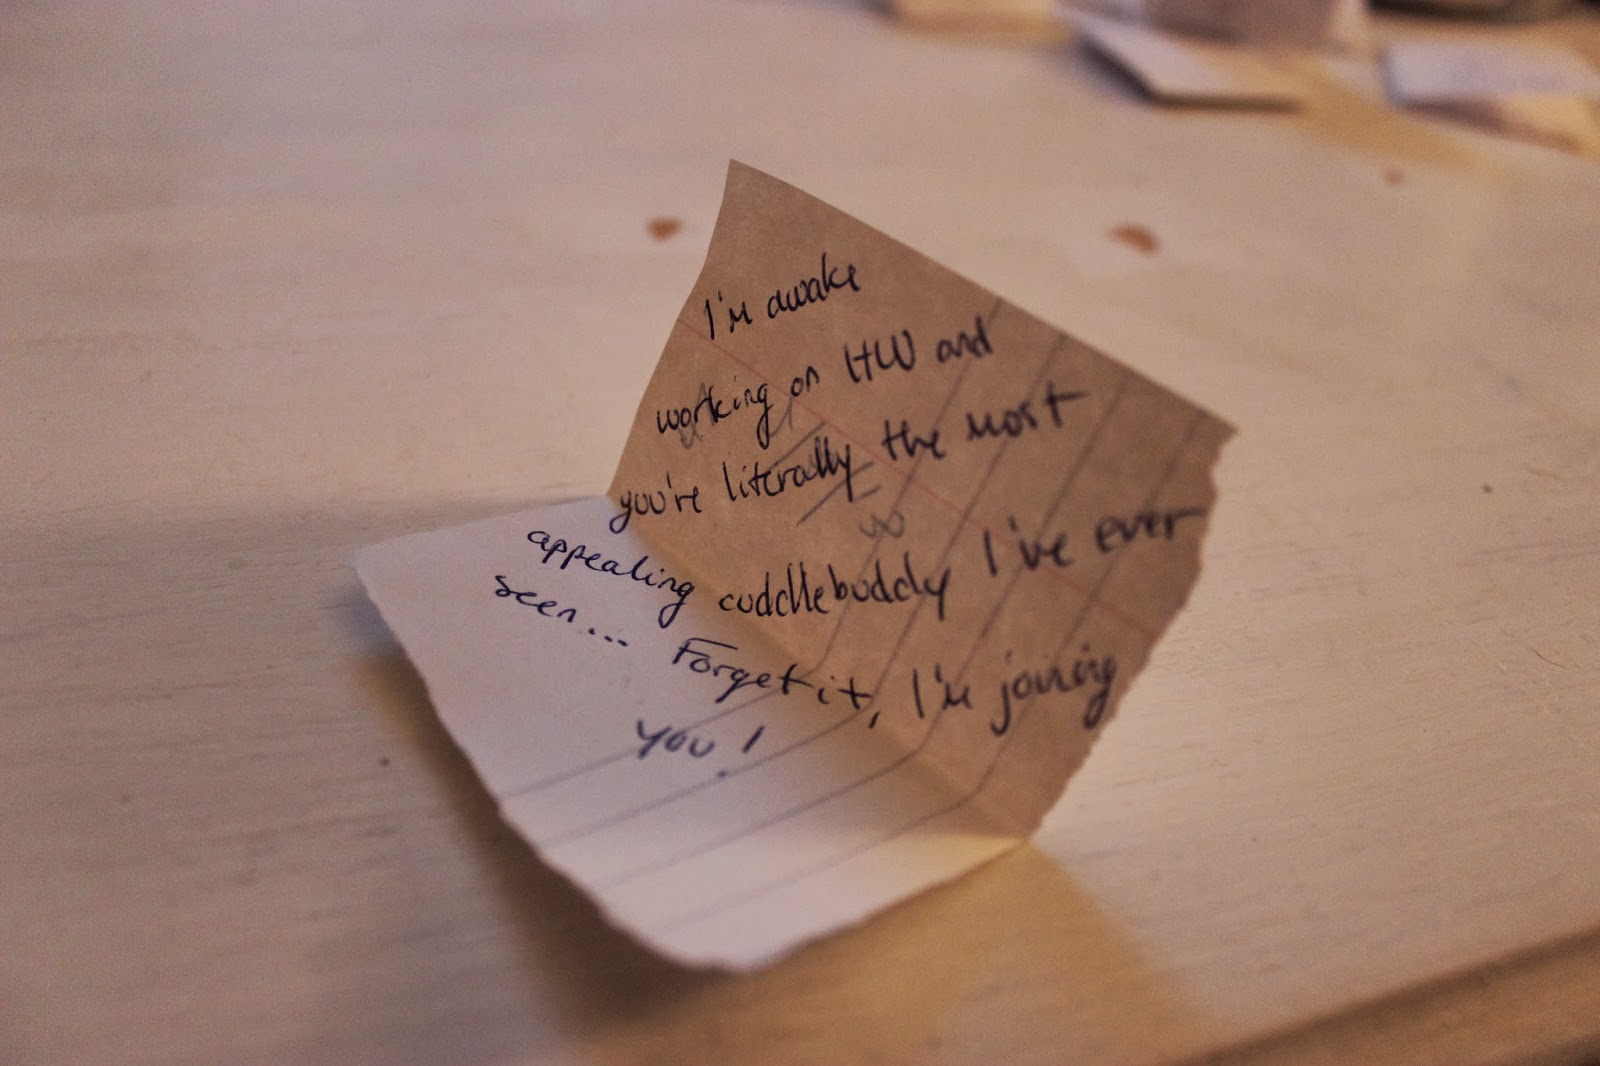 I'm awake
working on HW and
you're literally the most
appealing cuddlebuddy I've ever
seen... Forget it, I'm joining
you!